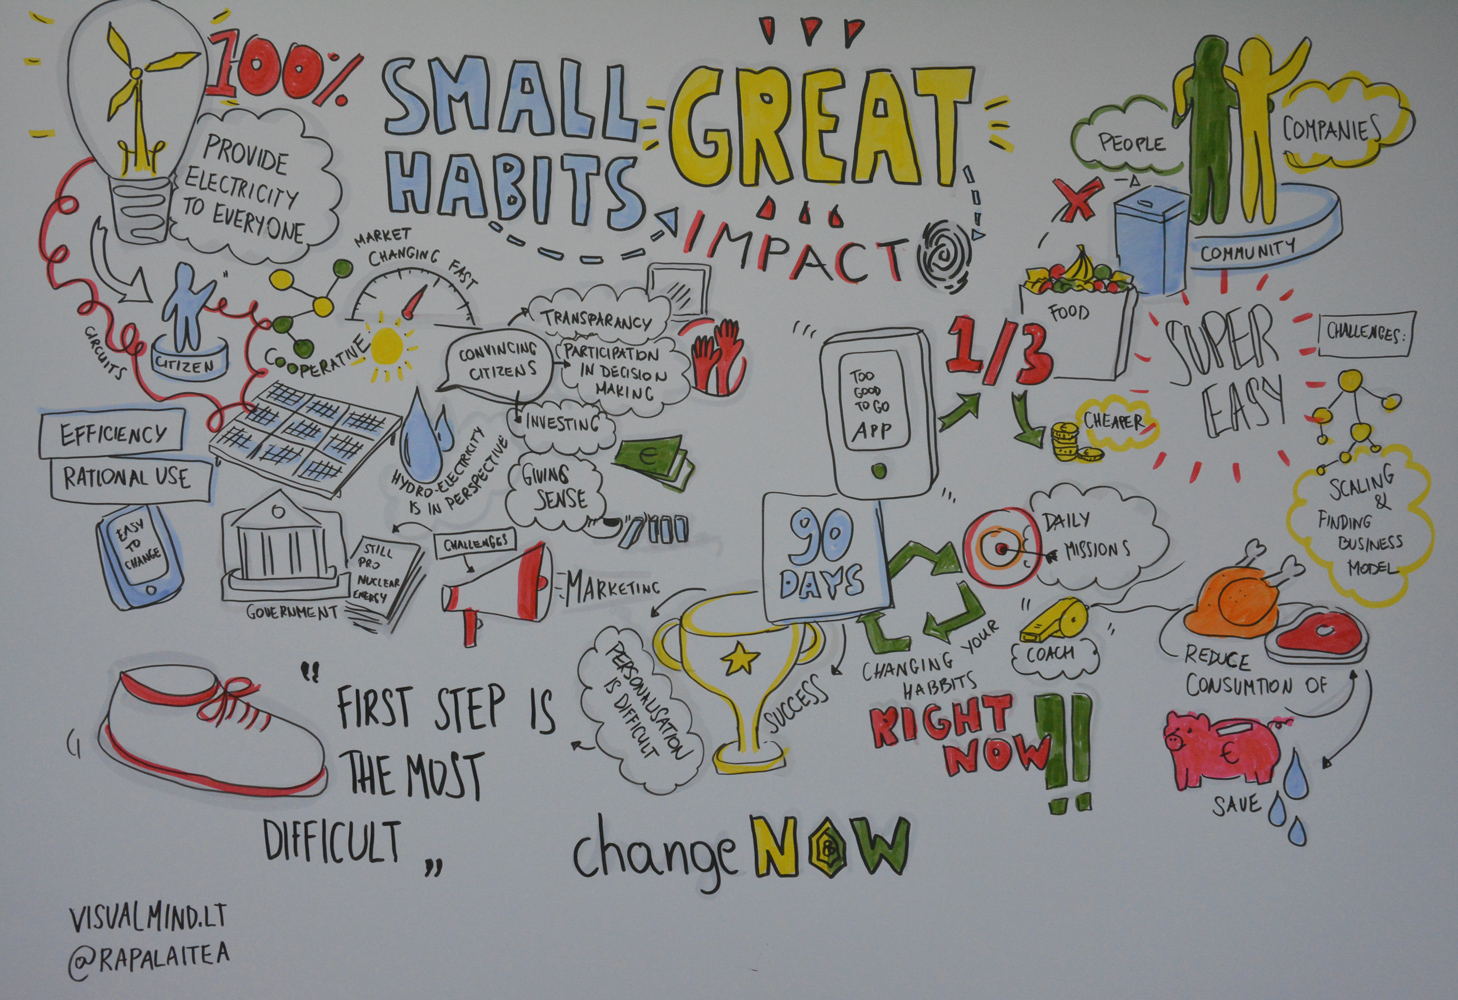 100%
PROVIDE
ELECTRICITY
TO EVERYONE
SMALL
HABITS
GREAT
IMPACT
PEOPLE
COMPANIES
COMMUNITY
MARKET
CHANGING FAST
CITIZEN
CIRCUITS
COOPERATIVE
EFFICIENCY
RATIONAL USE
EASY
TO
CHANGE
HYDRO-ELECTRICITY
IS IN PERSPECTIVE
CONVINCING
CITIZENS
TRANSPARANCY
PARTICIPATION
IN DECISION
MAKING
INVESTING
€
GIVING
SENSE
GOVERNMENT
STILL
PRO
NUCLEAR
ENERGY
CHALLENGES
MARKETING
TOO
GOOD
TO GO
APP
1/3
FOOD
CHEAPER
SUPER
EASY
CHALLENGES:
SCALING
&
FINDING
BUSINESS
MODEL
90
DAYS
DAILY
MISSIONS
CHANGING YOUR
HABBITS
RIGHT
NOW!!
COACH
REDUCE
CONSUMTION OF
€
SAVE
SUCCESS
PERSONALISATION
IS DIFFICULT
"FIRST STEP IS
THE MOST
DIFFICULT„
change NOW
VISUALMIND.LT
@RAPALAITEA